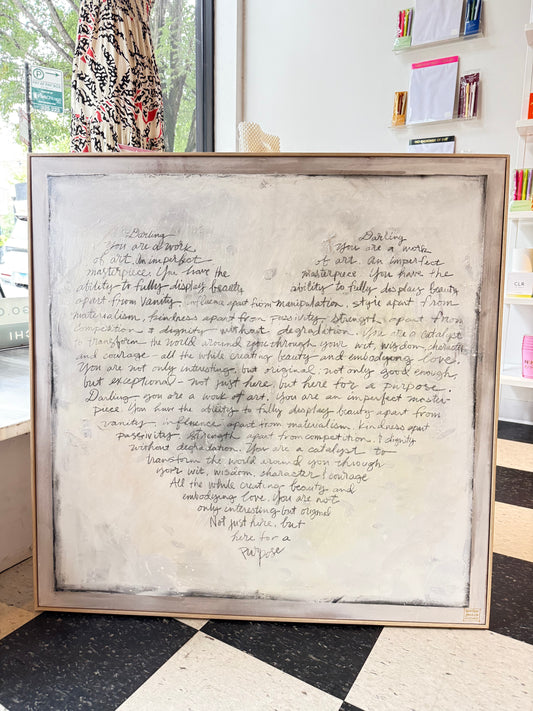 Darling
You are a work
of art. An imperfect
masterpiece. You have the
ability to fully display beauty
Darling
You are a work
of art. An imperfect
masterpiece. You have the
ability to fully display beauty
apart from vanity, influence apart from manipulation, style apart from
materialism, kindness apart from passivity, strength apart from
competition & dignity without degradation. You are a catalyst
to transform the world around you through your wit, wisdom, character
and courage - all the while creating beauty and embodying love.
You are not only interesting, but original, not only good enough,
but exceptional - not just here, but here for a purpose.
Darling you are a work of art. You are an imperfect master-
piece. You have the ability to fully display beauty apart from
vanity, influence apart from materialism, kindness apart
passivity strength apart from competition, & dignity
without degradation. You are a catalyst to
transform the world around you through
your wit, wisdom, character & courage
All the while creating beauty and
embodying love. You are not
only interesting but original
Not just here, but
here for a
purpose
P
CLR